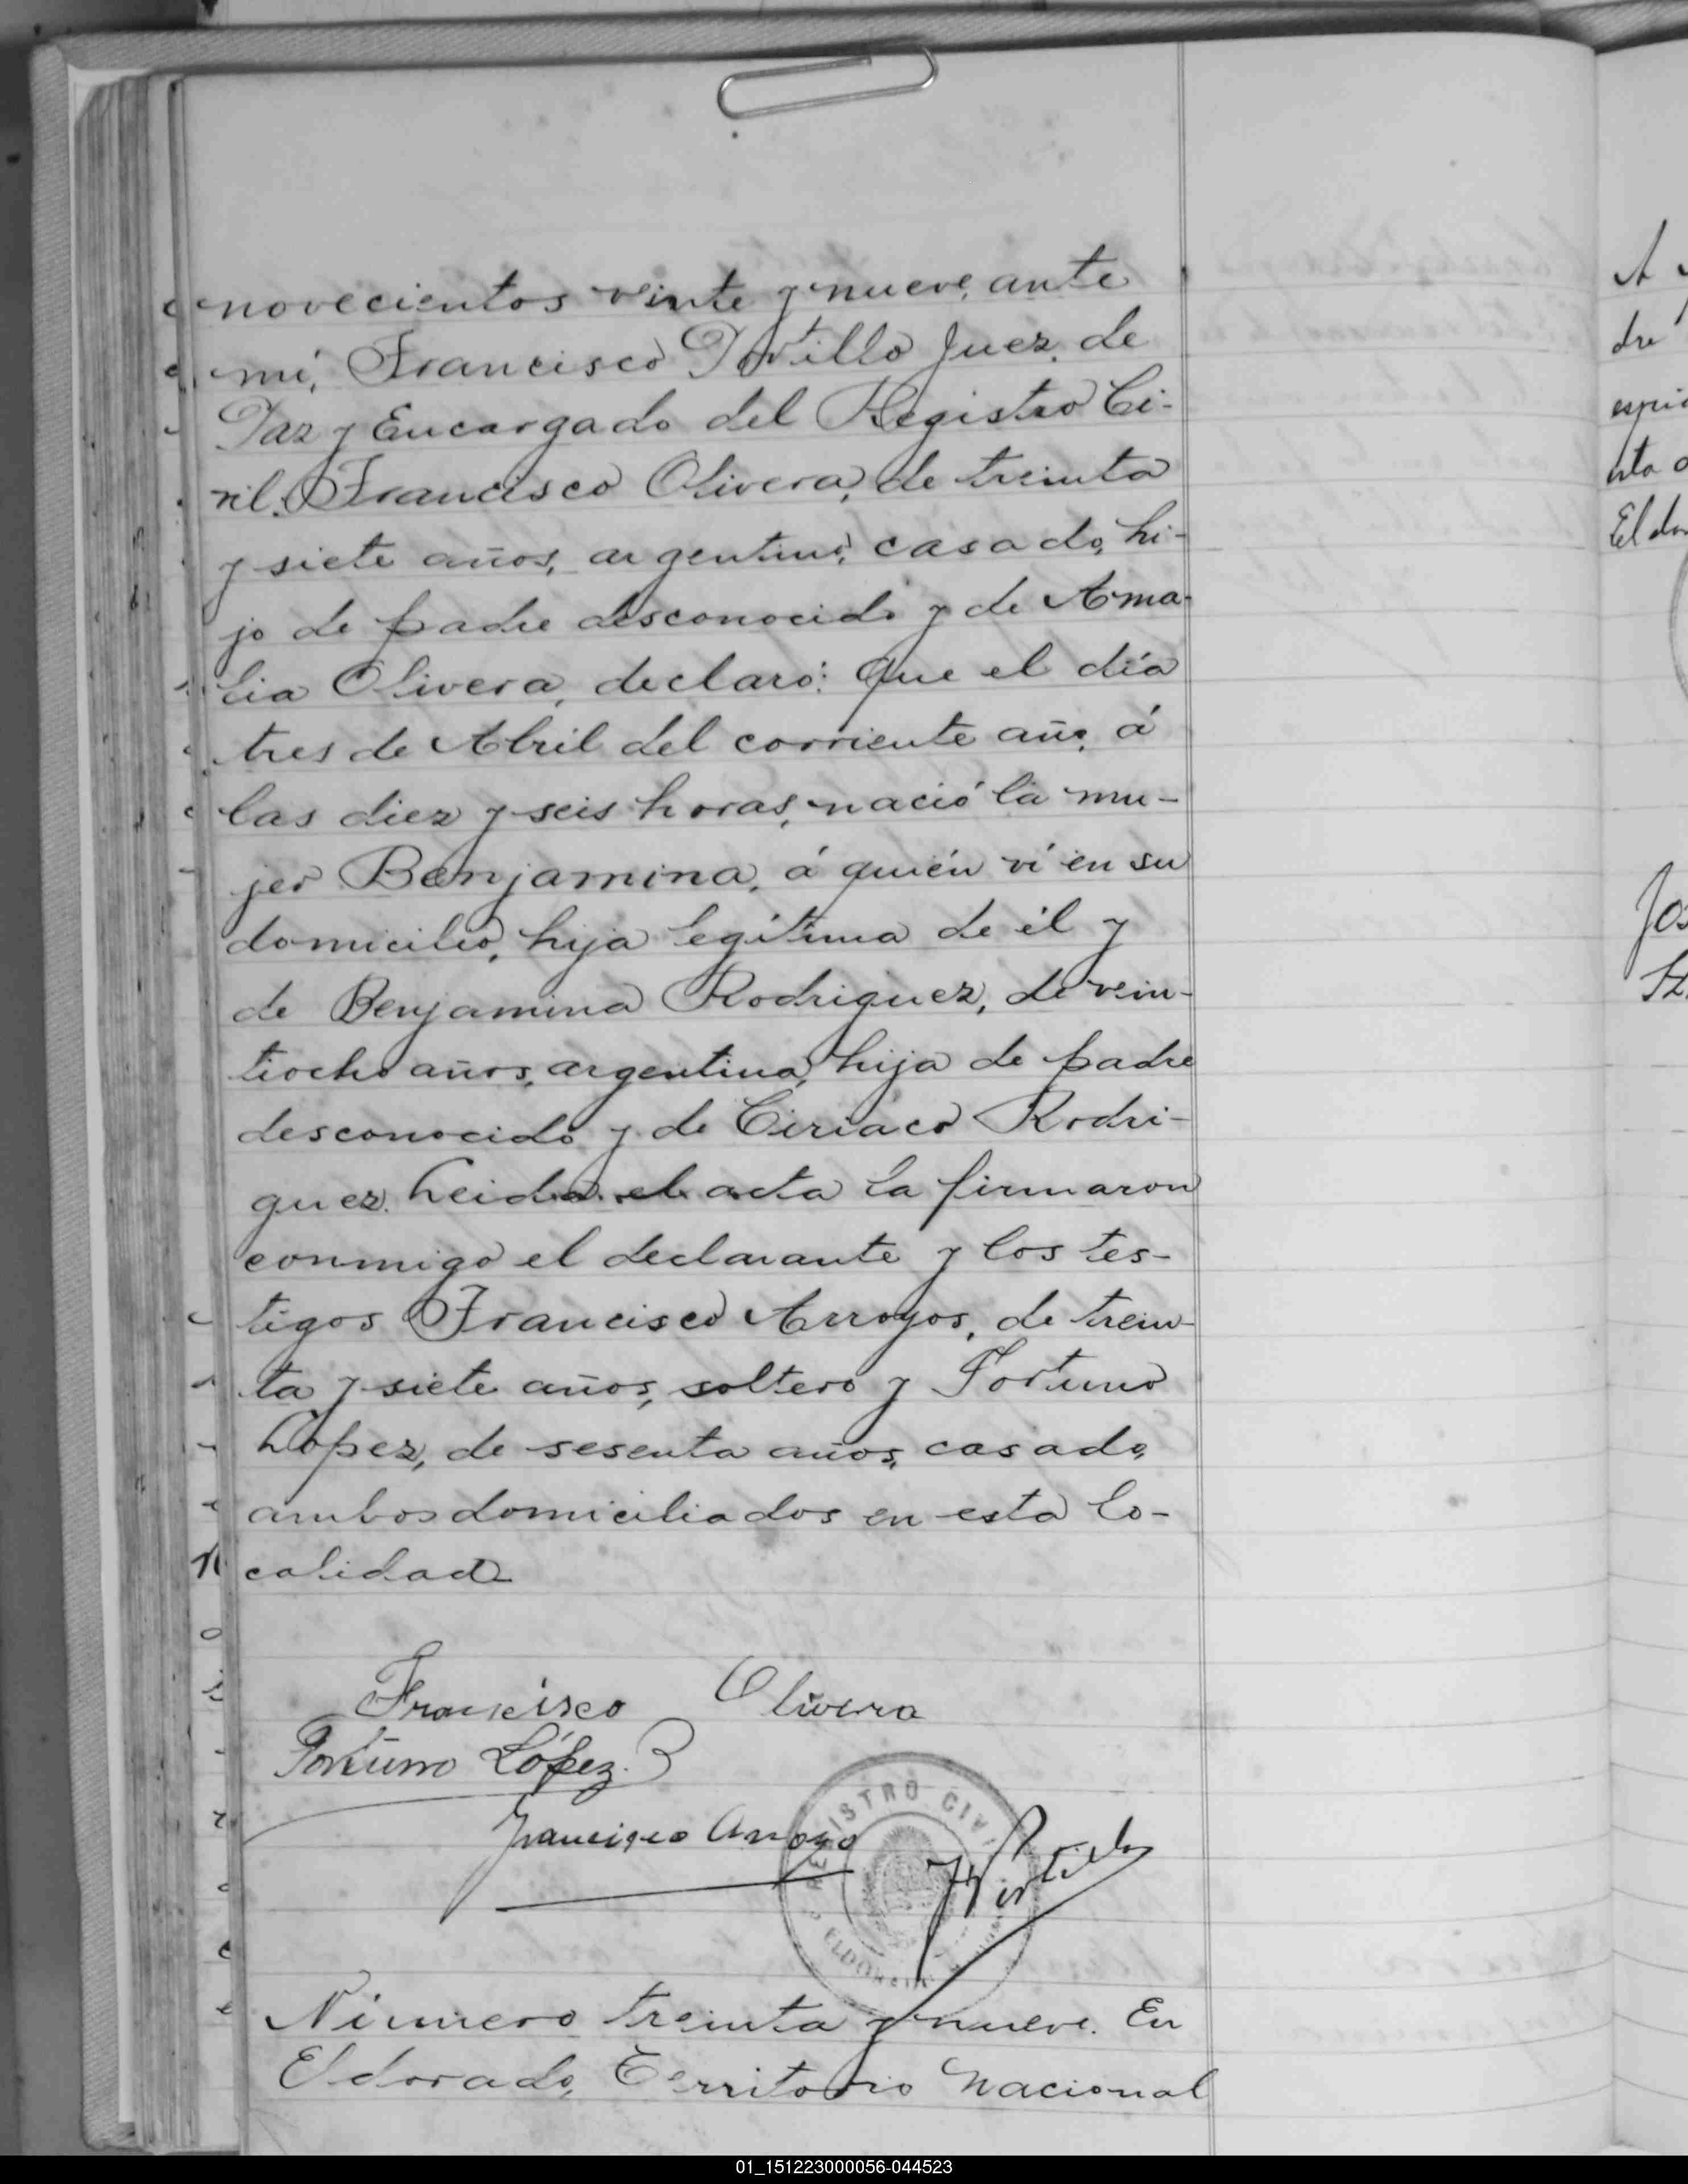 novecientos veinte y nueve, ante
mí, Francisco Portillo Juez de
Paz y Encargado del Registro Ci-
vil, Francisco Olivera, de treinta
y siete años, argentino, casado, hi-
jo de padre desconocido y de Ama-
lia Olivera, declaró: Que el día
tres de Abril del corriente año, á
las diez y seis horas, nació la mu-
jer Benjamina, á quién ví en su
domicilio, hija legítima de él y
de Benjamina Rodriguez, de vein-
tiocho años, argentina, hija de padre
desconocido y de Ciriaco Rodri-
guez. Leida el acta la firmaron
conmigo el declarante y los tes-
tigos Francisco Arroyos, de trein-
ta y siete años, soltero y Fortuno
Lopez, de sesenta años, casado,
ambos domiciliados en esta lo-
calidad
Francisco Olivera
Fortuno López.
Francisco Arroyo
REGISTRO CIVIL
ELDORADO
F Portillo
Número treinta y nueve. En
Eldorado, Territorio Nacional
A
dre
espi
Eldo
Jos
01_151223000056-044523